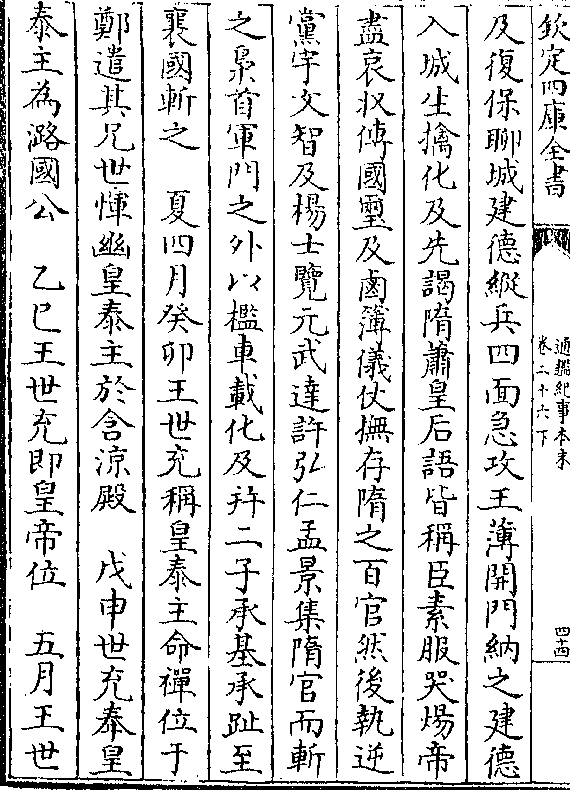 欽定四庫全書
通鑑紀事本末
卷二十六下
四十四
及復保聊城建德縱兵四面急攻王薄開門納之建德
入城生擒化及先謁隋蕭皇后語皆稱臣素服哭煬帝
盡哀收傳國璽及鹵簿儀仗撫存隋之百官然後執逆
黨宇文智及楊士覽元武達許弘仁孟景集隋官而斬
之梟首軍門之外以檻車載化及幷二子承基承趾至
襄國斬之　夏四月癸卯王世充稱皇泰主命禪位于
鄭遣其兄世惲幽皇泰主於含涼殿　戊申世充奉皇
泰主為潞國公　乙巳王世充即皇帝位　五月王世